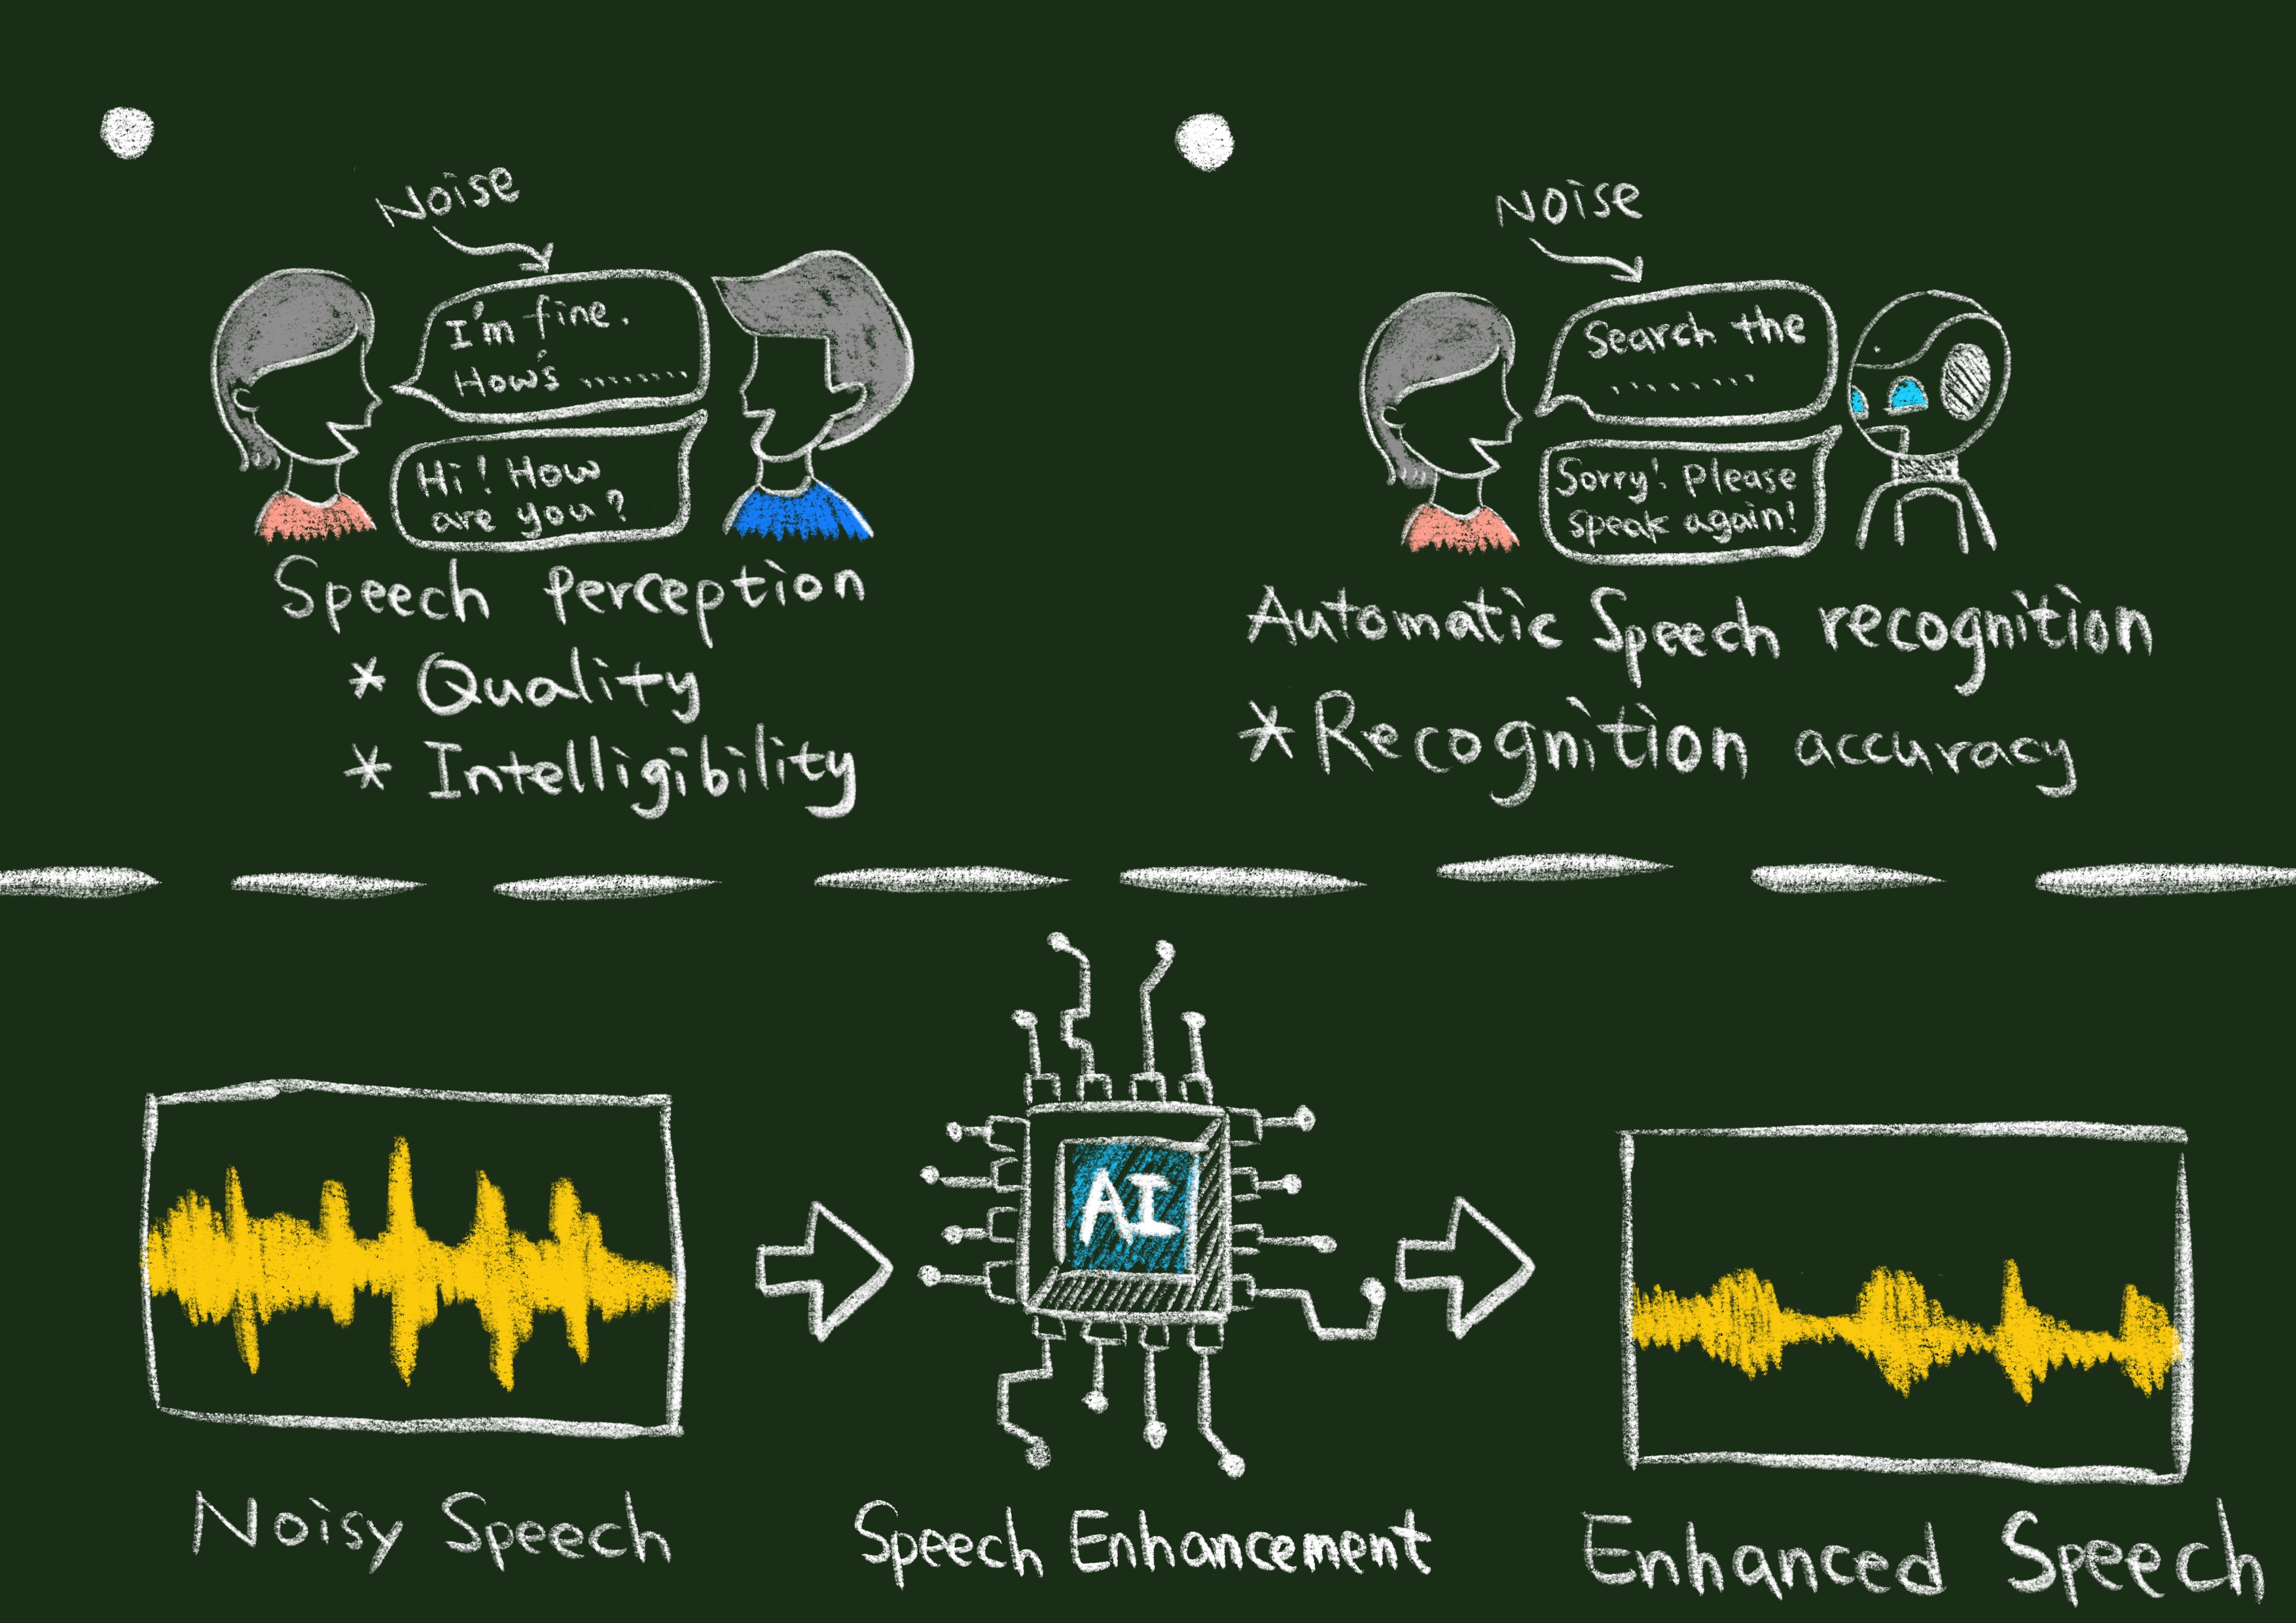 Noise
I'm fine.
How's ........
Hi! How
are you?
Speech perception
* Quality
* Intelligibility
Noise
Search the
........
Sorry! please
speak again!
Automatic Speech recognition
* Recognition accuracy
AI
Noisy Speech
Speech Enhancement
Enhanced Speech